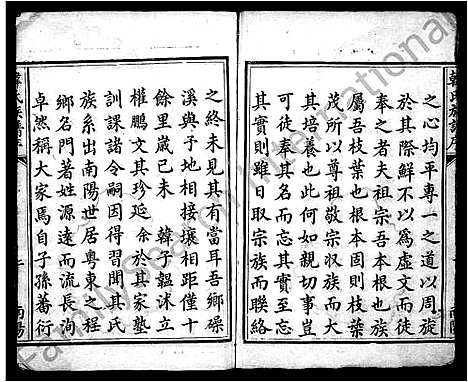 之心均平專一之道以周旋
於其際鮮不以爲虛文而徒
奉之者夫祖宗吾本根也族
屬吾枝葉也根本固則枝葉
茂所以尊祖敬宗收族而大
其培養也此何如親切事豈
可徒奉其名而忘其實至忘
其實則雖日取宗族而聯絡
之終未見其有當耳吾鄉礤
溪與予地相接壤相距僅十
餘里歲己未 韓子韞述立
權鵬文其珍延 余於其家塾
訓課諸令嗣因得習聞其氏
族系出南陽世居粵東之程
鄉名門著姓源遠而流長洵
卓然稱大家焉自子孫蕃衍
韓氏族譜序
南陽